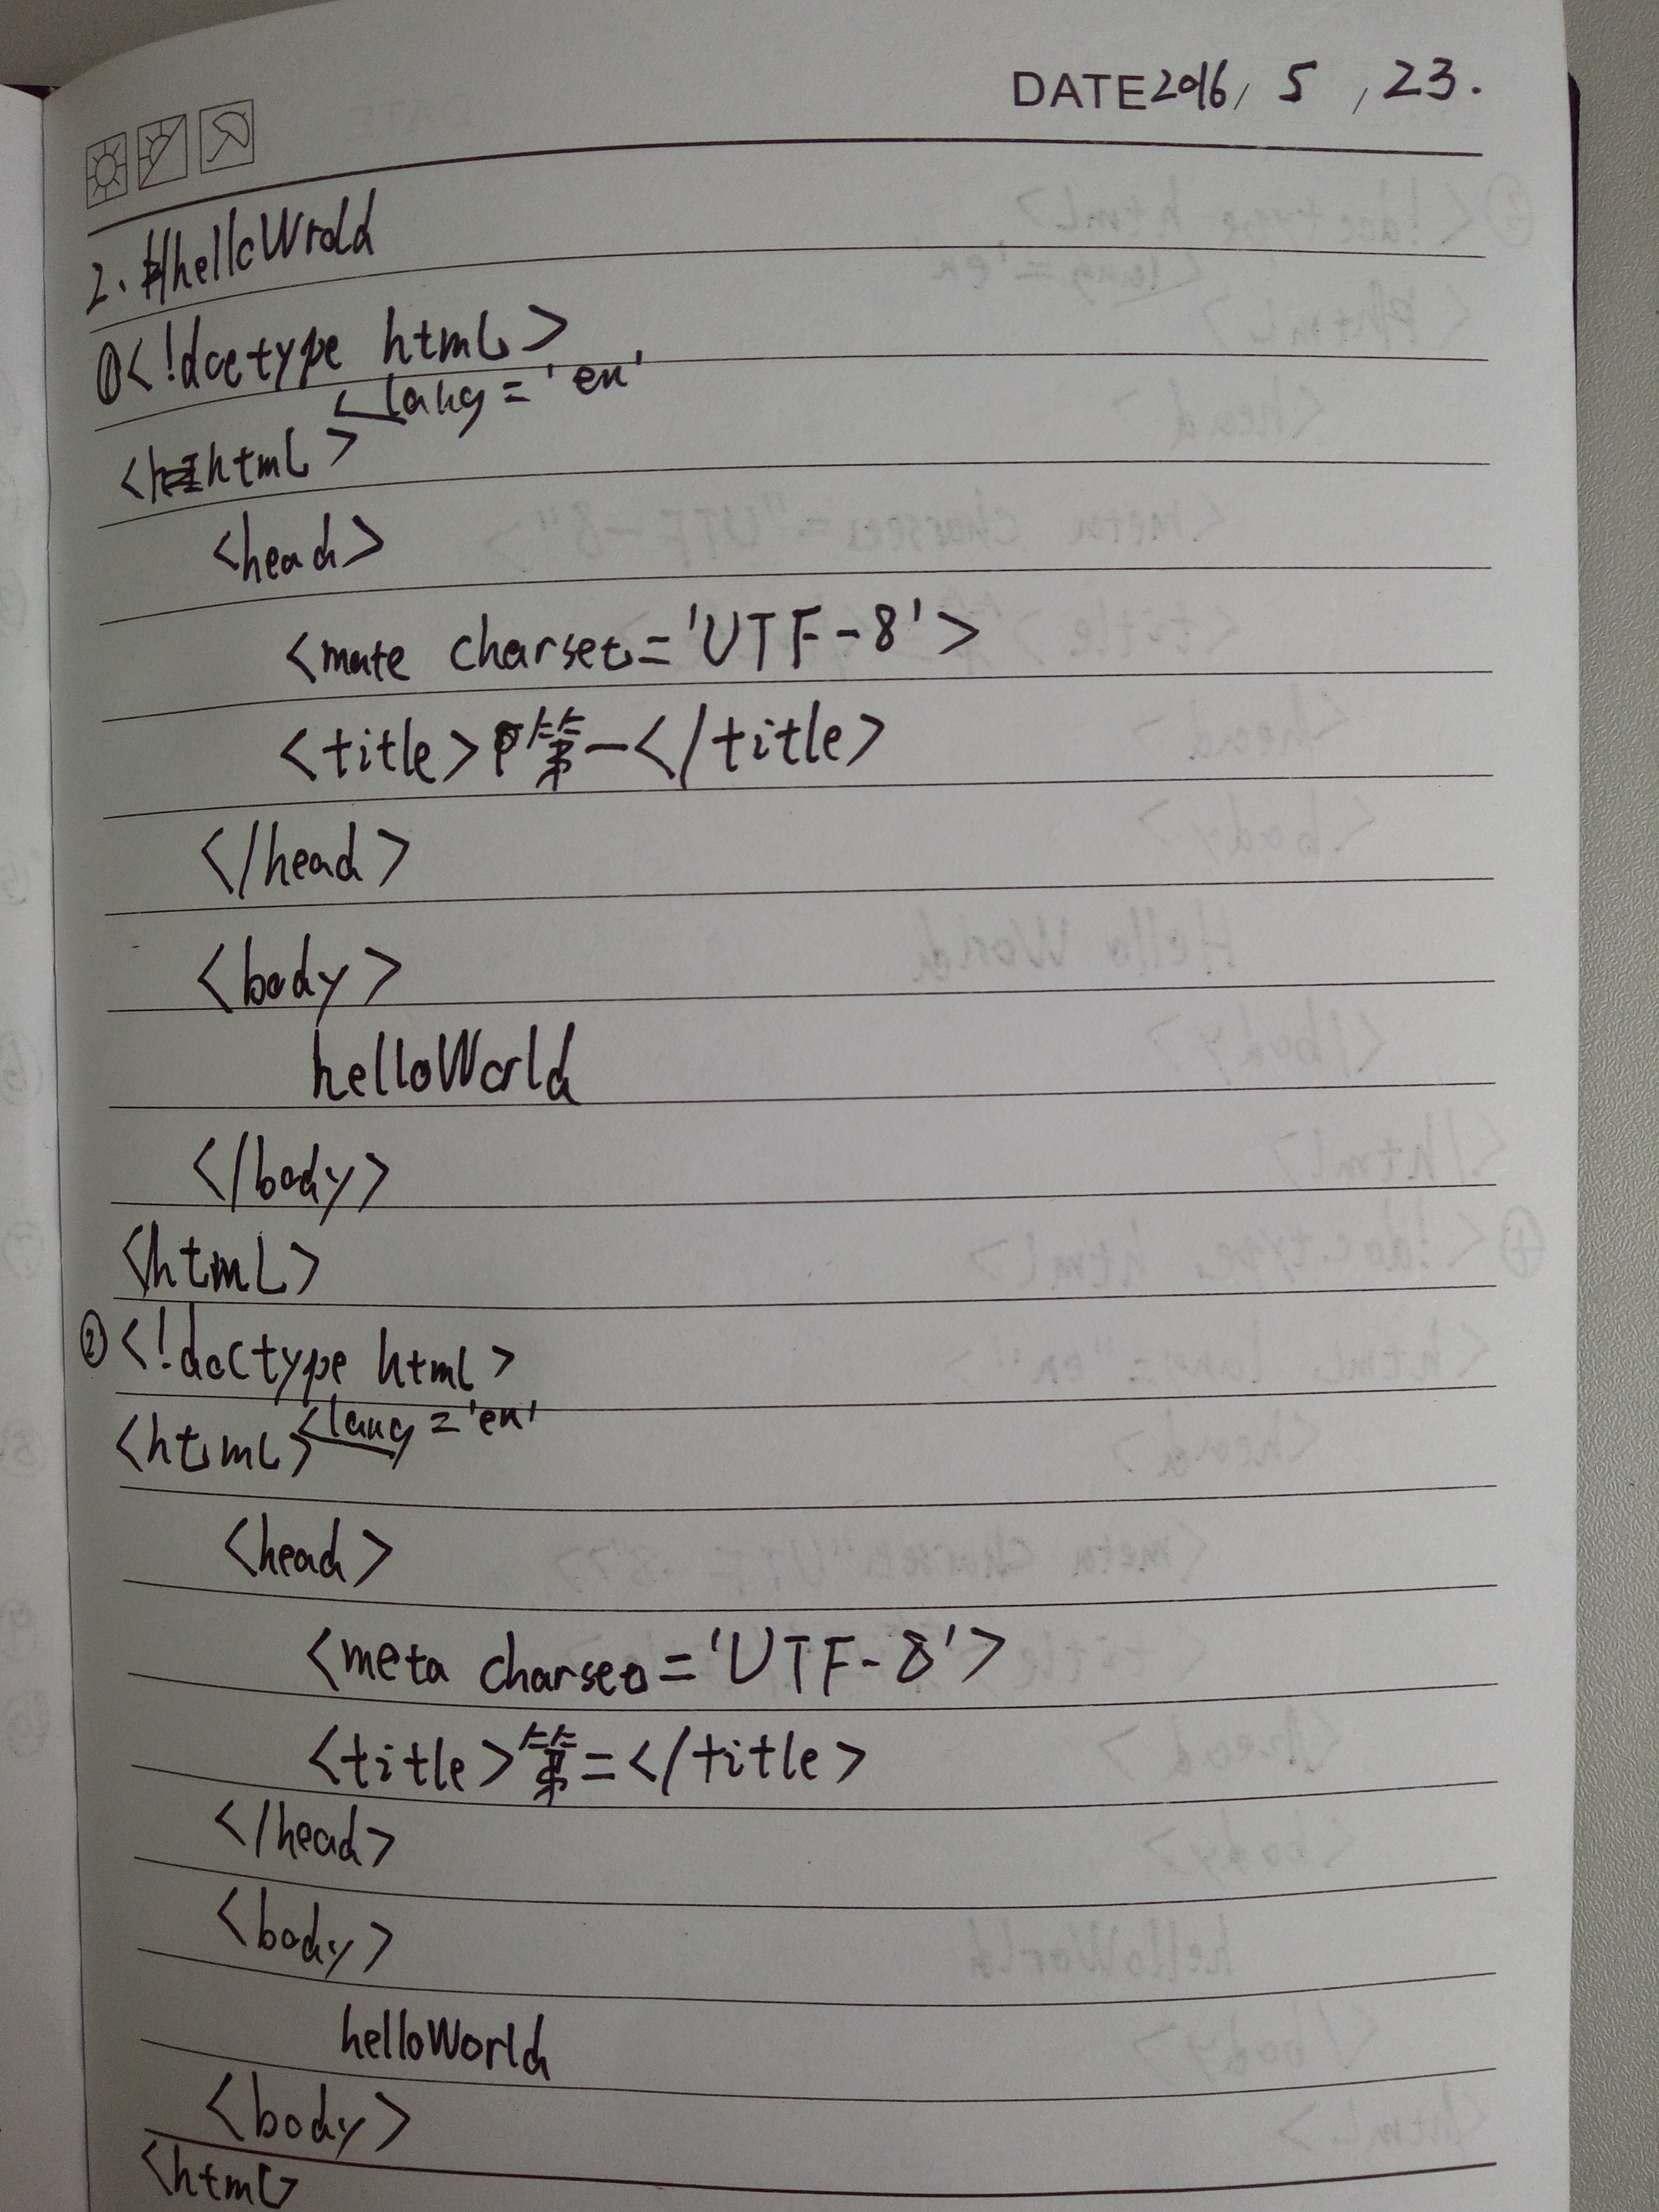 DATE 2016 / 5 / 23.
2. #helloWrold
①<!doctype html>
<html lang='en'>
<head>
<mate charset='UTF-8'>
<title>第一</title>
</head>
<body>
helloWorld
</body>
<html>
②<!doctype html>
<html lang='en'>
<head>
<meta charset='UTF-8'>
<title>第二</title>
</head>
<body>
helloWorld
<body>
<html>